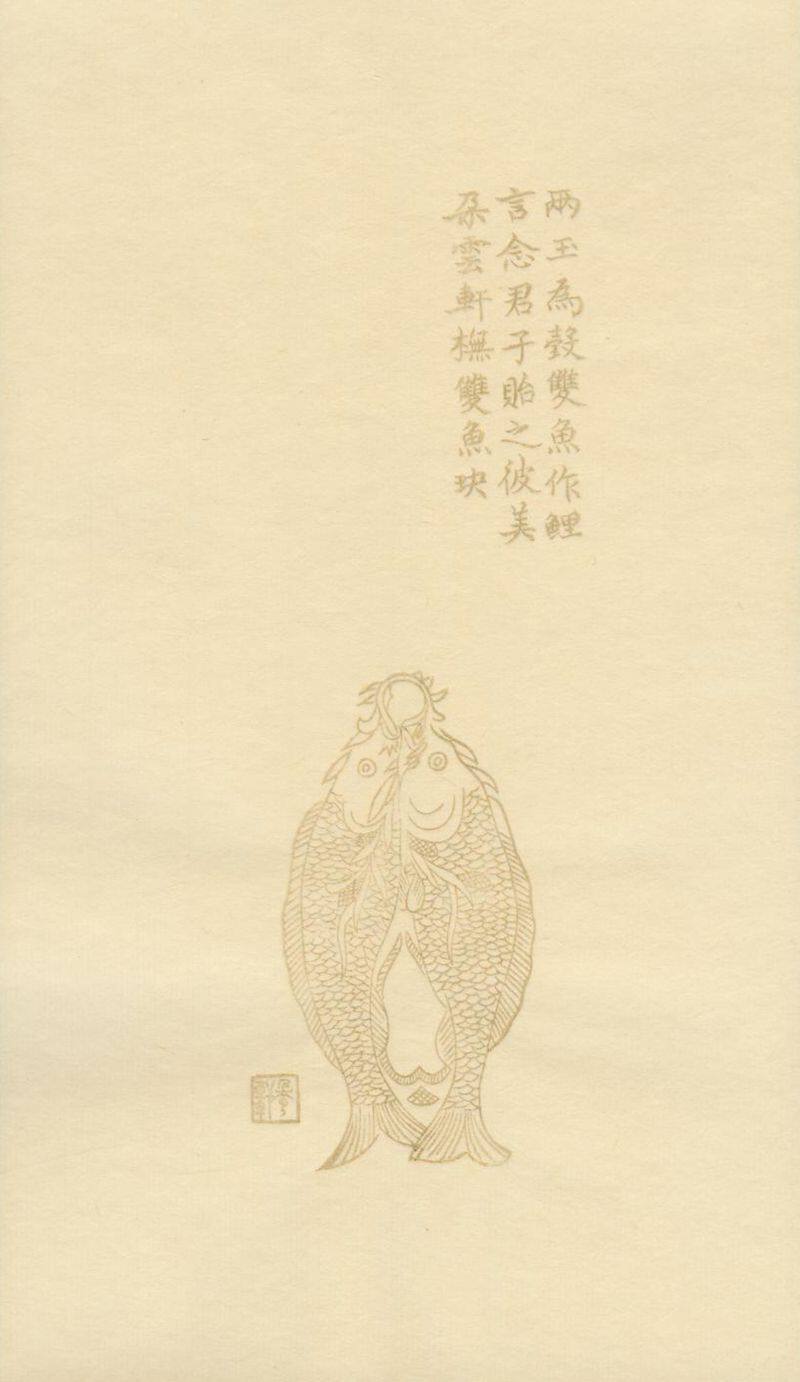 兩玉為瑴雙魚作鯉
言念君子貽之彼美
朶雲軒橅雙魚玦